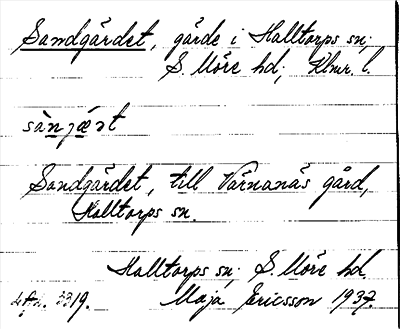 Sandgärdet, gärde i Halltorps sn;
S. Möre hd, Klmr. l.
sàn̲jǽ̲ṣt
Sandgärdet, till Värnanäs gård,
Halltorps sn.
Halltorps sn; S. Möre hd.
3319. Maja Ericsson 1937.